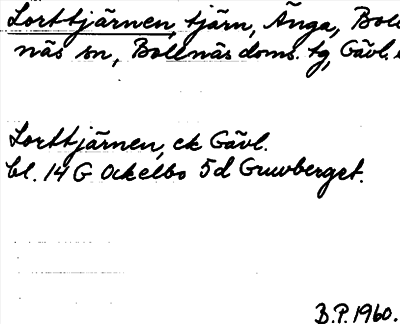 Lorttjärnen, tjärn, Änga, Boll
näs sn, Bollnäs doms. tg, Gävl.
Lorttjärnen, ek Gävl.
bl. 14 G Ockelbo 5d Gruvberget.
B.P. 1960.